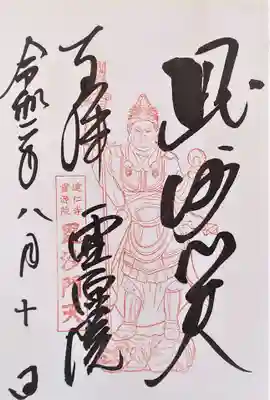 毘沙門天
靈源院
令和二年八月十日
建仁寺
靈源院
毘沙門天